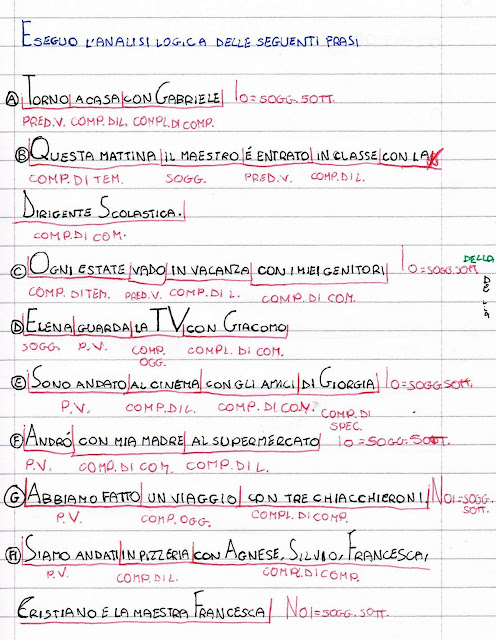 ESEGUO L'ANALISI LOGICA DELLE SEGUENTI FRASI
A TORNO A CASA CON GABRIELE IO = SOGG. SOTT.
PRED. V. COMP. DI L. COMPL. DI COMP.
B QUESTA MATTINA IL MAESTRO È ENTRATO IN CLASSE CON LA
COMP. DI TEM. SOGG. PRED. V. COMP. DI L.
DIRIGENTE SCOLASTICA.
COMP. DI COM.
DELLA
C OGNI ESTATE VADO IN VACANZA CON I MIEI GENITORI IO = SOGG. SOTT.
COMP. DI TEM. PRED. V. COMP. DI L. COMP. DI COM.
D ELENA GUARDA LA TV CON GIACOMO
SOGG. P.V. COMP. OGG. COMPL. DI COM.
E SONO ANDATO AL CINEMA CON GLI AMICI DI GIORGIA IO = SOGG. SOTT.
P.V. COMP. DI L. COMP. DI COM. COMP. DI SPEC.
F ANDRÓ CON MIA MADRE AL SUPERMERCATO IO = SOGG. SOTT.
P.V. COMP. DI COM. COMP. DI L.
G ABBIAMO FATTO UN VIAGGIO CON TRE CHIACCHIERONI NOI = SOGG. SOTT.
P.V. COMP. OGG. COMPL. DI COMP.
H SIAMO ANDATI IN PIZZERIA CON AGNESE, SILVIO, FRANCESCA,
P.V. COMP. DI L. COMPL. DI COMP.
CRISTIANO E LA MAESTRA FRANCESCA NOI = SOGG. SOTT.